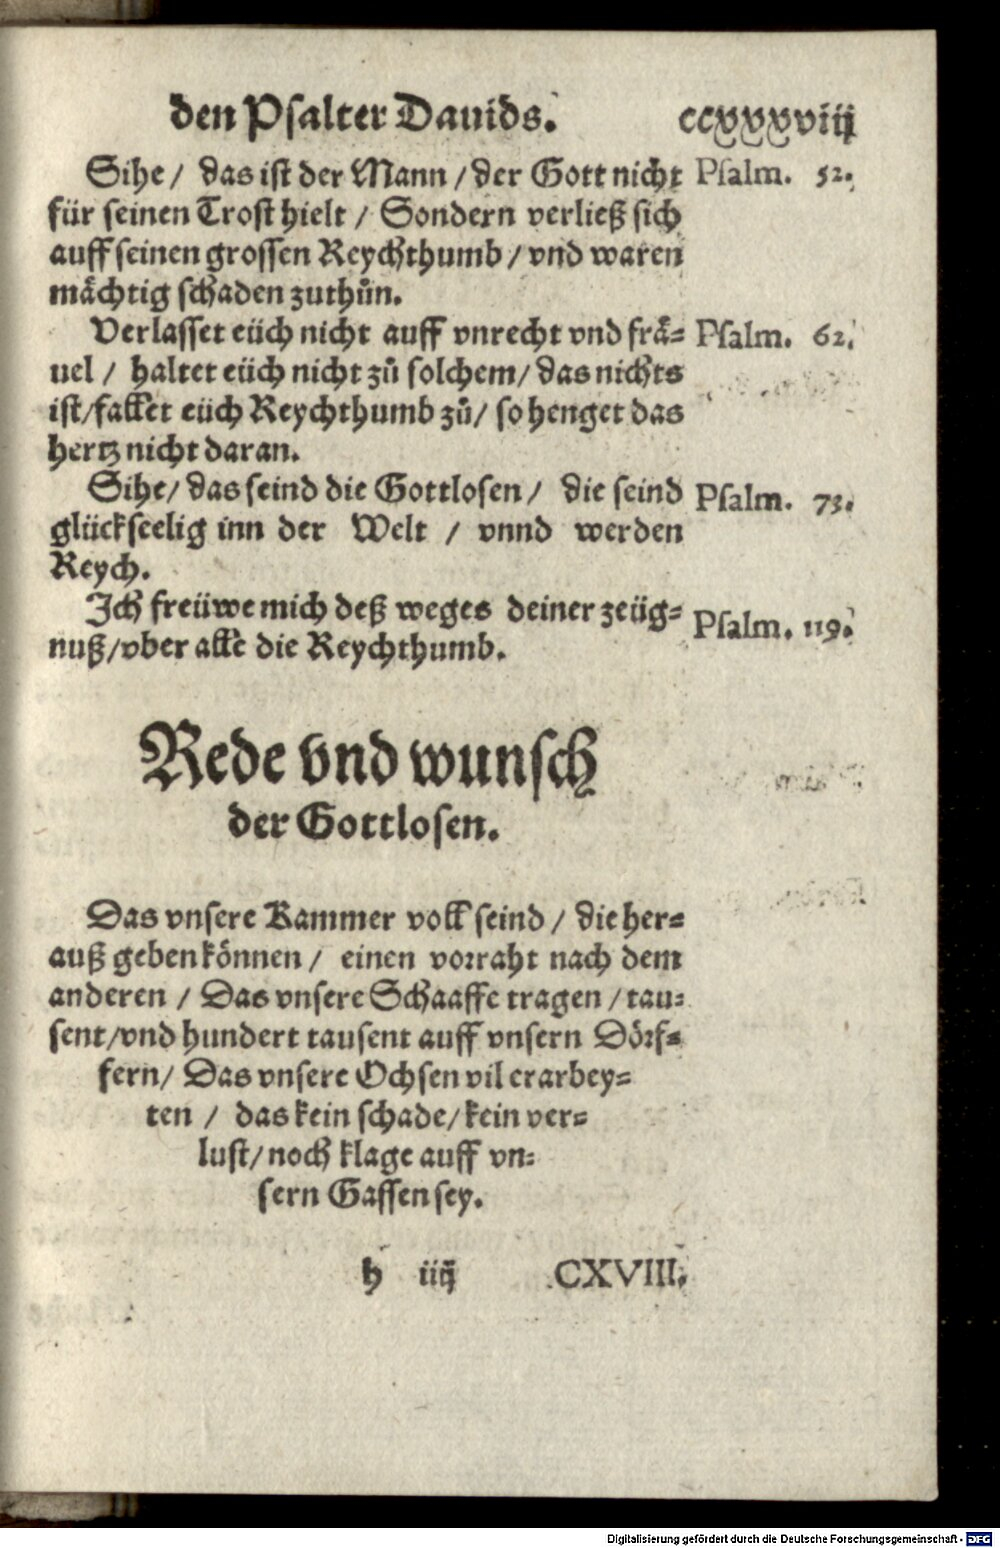 den Psalter Dauids. ccxxxviij
Sihe / das ist der Mann / der Gott nicht Psalm. 52.
für seinen Trost hielt / Sondern verließ sich
auff seinen grossen Reychthumb / vnd waren
mächtig schaden zuthůn.
Verlasset eüch nicht auff vnrecht vnd frä= Psalm. 62.
uel / haltet eüch nicht zů solchem / das nichts
ist / fallet eüch Reychthumb zů / so henget das
hertz nicht daran.
Sihe / das seind die Gottlosen / die seind Psalm. 73.
glückseelig inn der Welt / vnnd werden
Reych.
Ich freüwe mich deß weges deiner zeüg= Psalm. 119.
nuß / vber alle die Reychthumb.
Rede vnd wunsch
der Gottlosen.
Das vnsere Kammer voll seind / die her=
auß geben können / einen vorraht nach dem
anderen / Das vnsere Schaaffe tragen / tau=
sent / vnd hundert tausent auff vnsern Dörf=
fern / Das vnsere Ochsen vil erarbey=
ten / das kein schade / kein ver=
lust / noch klage auff vn=
sern Gassen sey.
h iiij CXVIII.
Digitalisierung gefördert durch die Deutsche Forschungsgemeinschaft - DFG